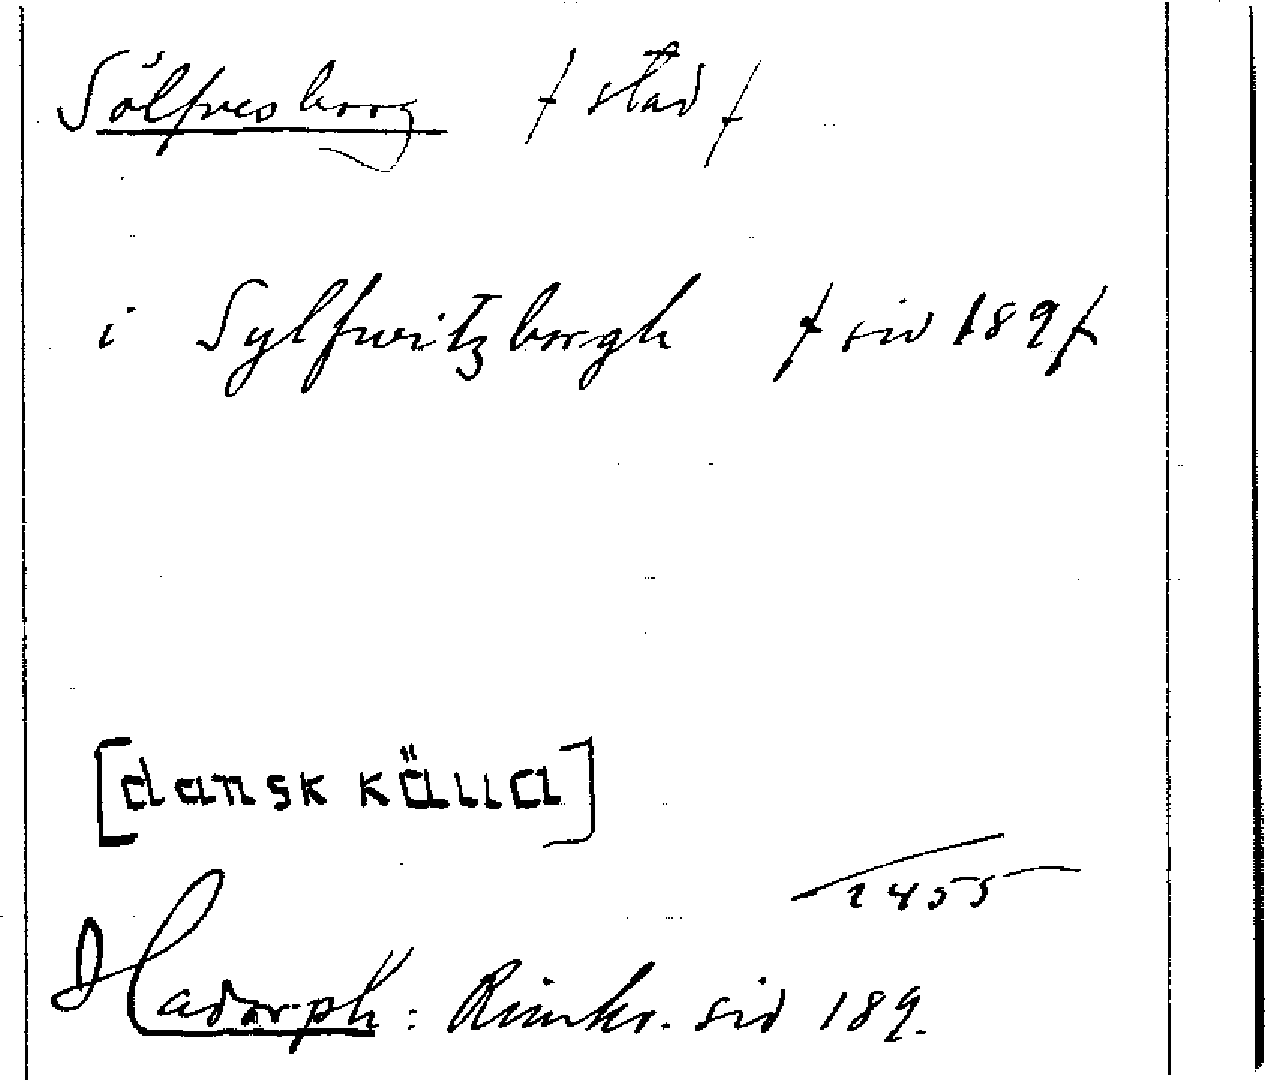 Sölfvesborg / stad /
i Sylfwitzborgh / sid 189 /
[dansk källa]
1455
Hadorph: Rimkr. sid 189.